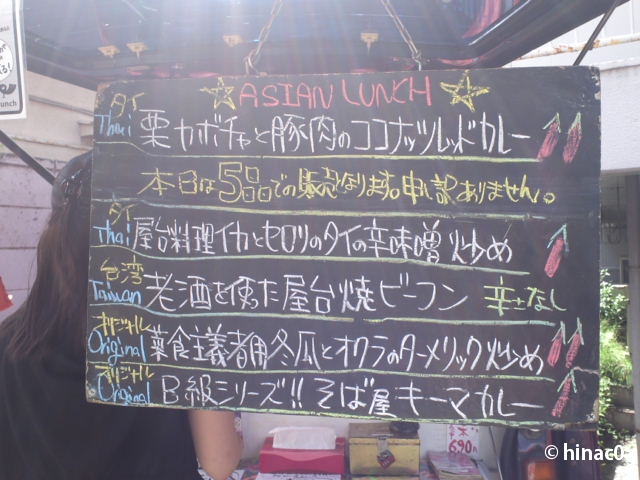 ☆ASIAN LUNCH☆
タイ
Thai 栗カボチャと豚肉のココナッツレッドカレー
本日は5品での販売なります。申し訳ありません。
タイ
Thai 屋台料理イカとセロリのタイの辛味噌炒め
台湾
Taiwan 老酒を使った屋台焼ビーフン 辛さなし
オリジナル
Original 菜食主義者用冬瓜とオクラのターメリック炒め
オリジナル
Original B級シリーズ!! そば屋キーマカレー
690
© hinac0